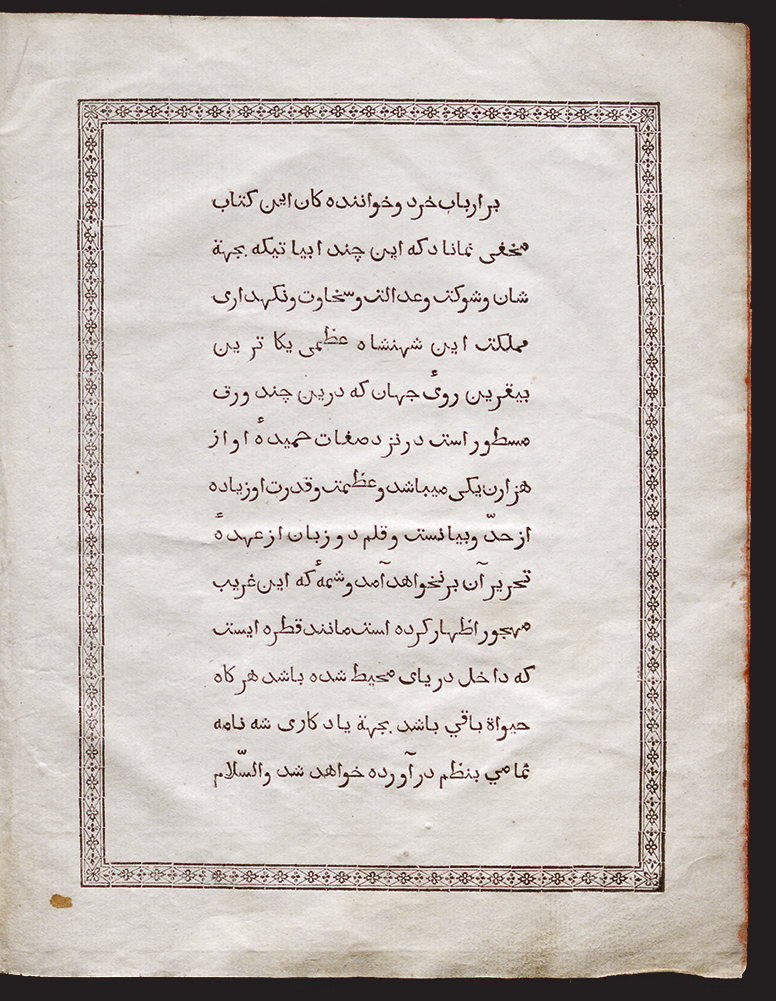 بر ارباب خرد و خواننده کان این کتاب
مخفی نماناد که این چند ابیاتیکه بجهة
شان و شوکت و عدالت و سخاوت و نکهداری
مملکت این شهنشاه عظمی یکا ترین
بیقرین روئ جهان که درین چند ورق
مسطور است در نزد صفات حمیدهٔ او از
هزارن یکی میباشد و عظمت و قدرت او زیاده
از حدّ و بیانست و قلم دو زبان از عهدهٔ
تحریر آن بر نخواهد آمد و شمهٔ که این غریب
مهجور اظهار کرده است مانند قطره ایست
که داخل دریای محیط شده باشد هر کاه
حیواة باقي باشد بجهة یادکاری شه نامه
تمامي بنظم در آورده خواهد شد والسّلام